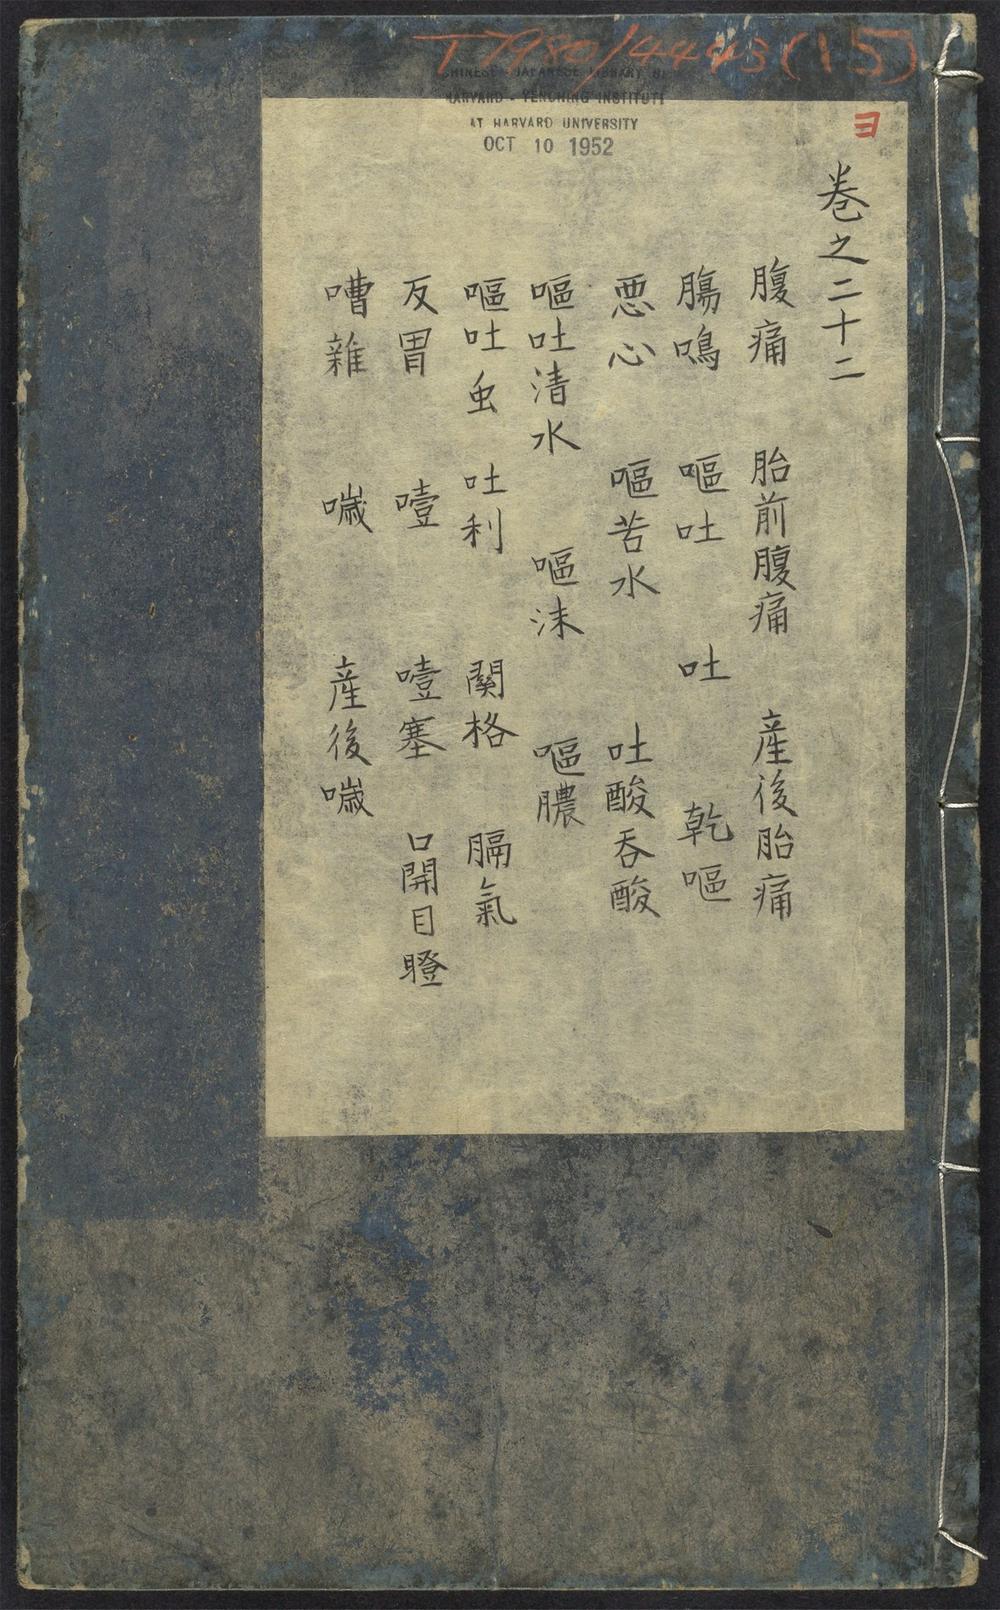 T7980/4443(15)
CHINESE - JAPANESE LIBRARY OF
HARVARD - YENCHING INSTITUTE
AT HARVARD UNIVERSITY
OCT 10 1952
ヨ
巻之二十二
腹痛 胎前腹痛 産後胎痛
腸鳴 嘔吐 吐 乾嘔
悪心 嘔苦水 吐酸呑酸
嘔吐清水 嘔沫 嘔膿
嘔吐虫 吐利 関格 膈氣
反胃 噎 噎塞 口開目瞪
嘈雜 噦 産後噦